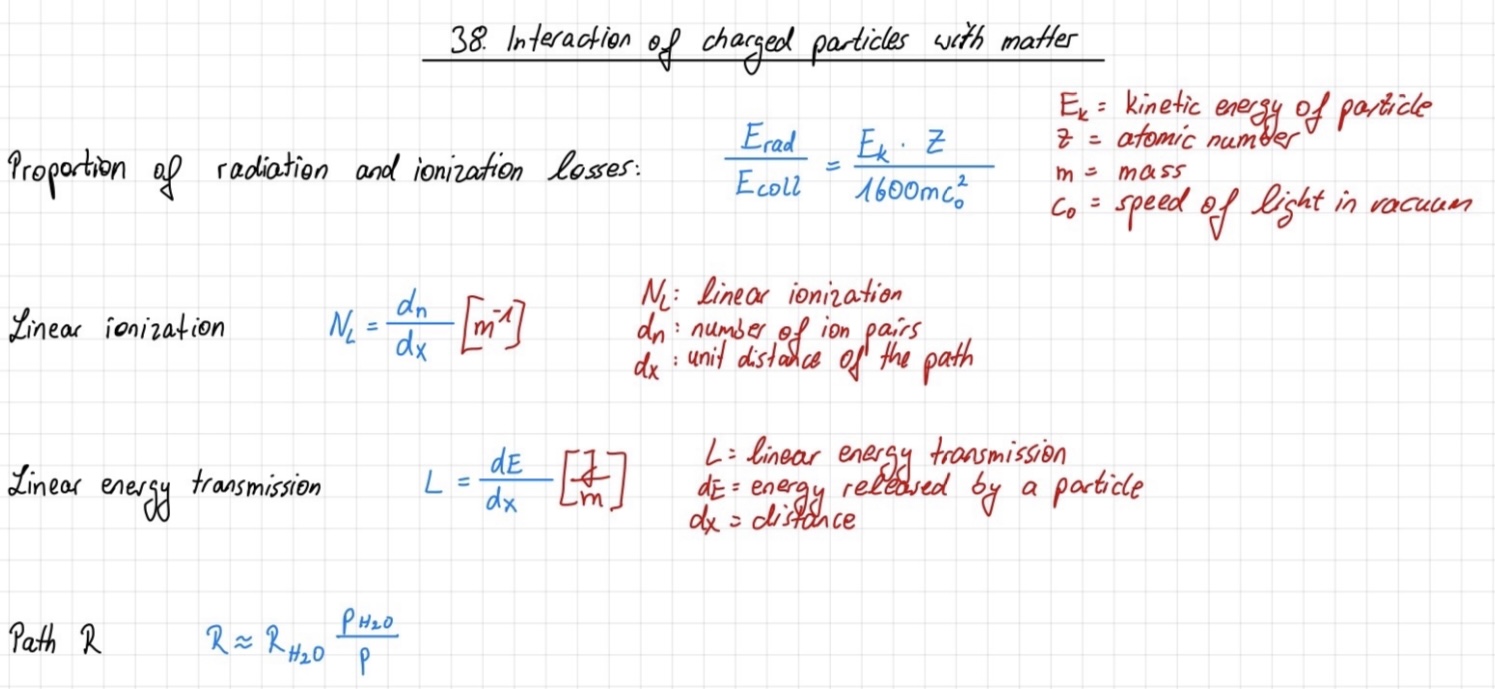 38. Interaction of charged particles with matter
Proportion of radiation and ionization losses: Erad / Ecoll = Ek · Z / 1600mc₀²
Ek = kinetic energy of particle
Z = atomic number
m = mass
c₀ = speed of light in vacuum
Linear ionization NL = dn / dx [m⁻¹]
NL: linear ionization
dn: number of ion pairs
dx: unit distance of the path
Linear energy transmission L = dE / dx [J / m]
L = linear energy transmission
dE = energy released by a particle
dx = distance
Path R R ≈ R H₂O ρ H₂O / ρ